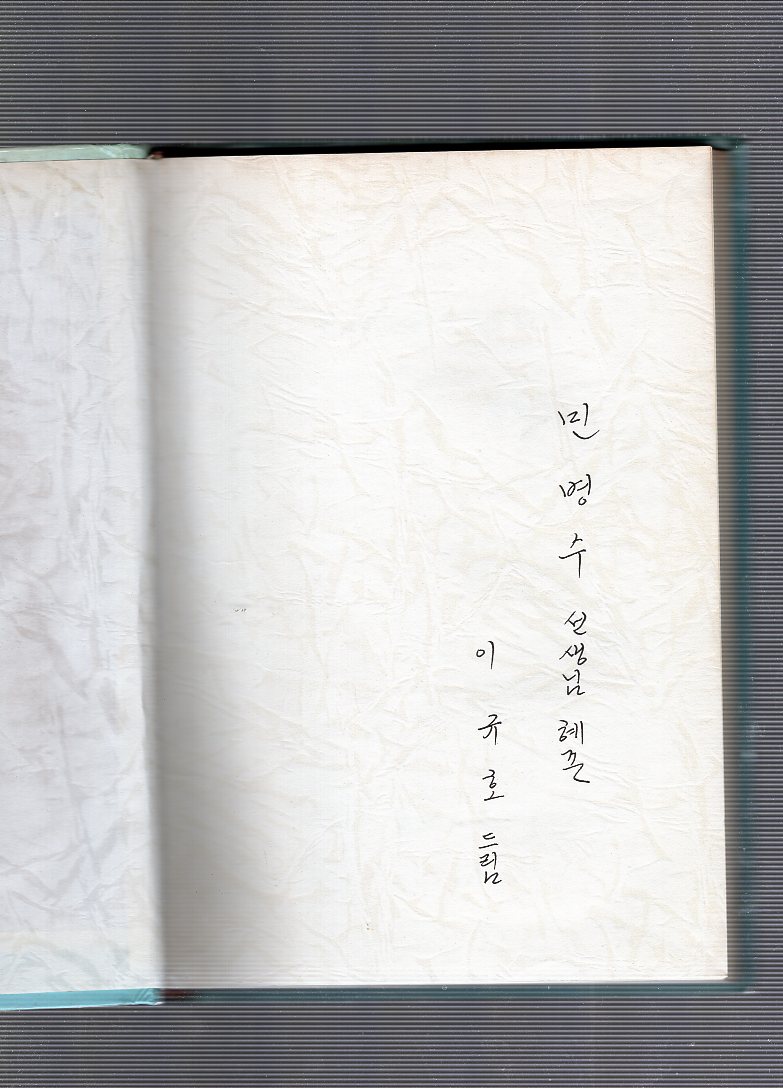 민병수 선생님 혜존
이규호 드림